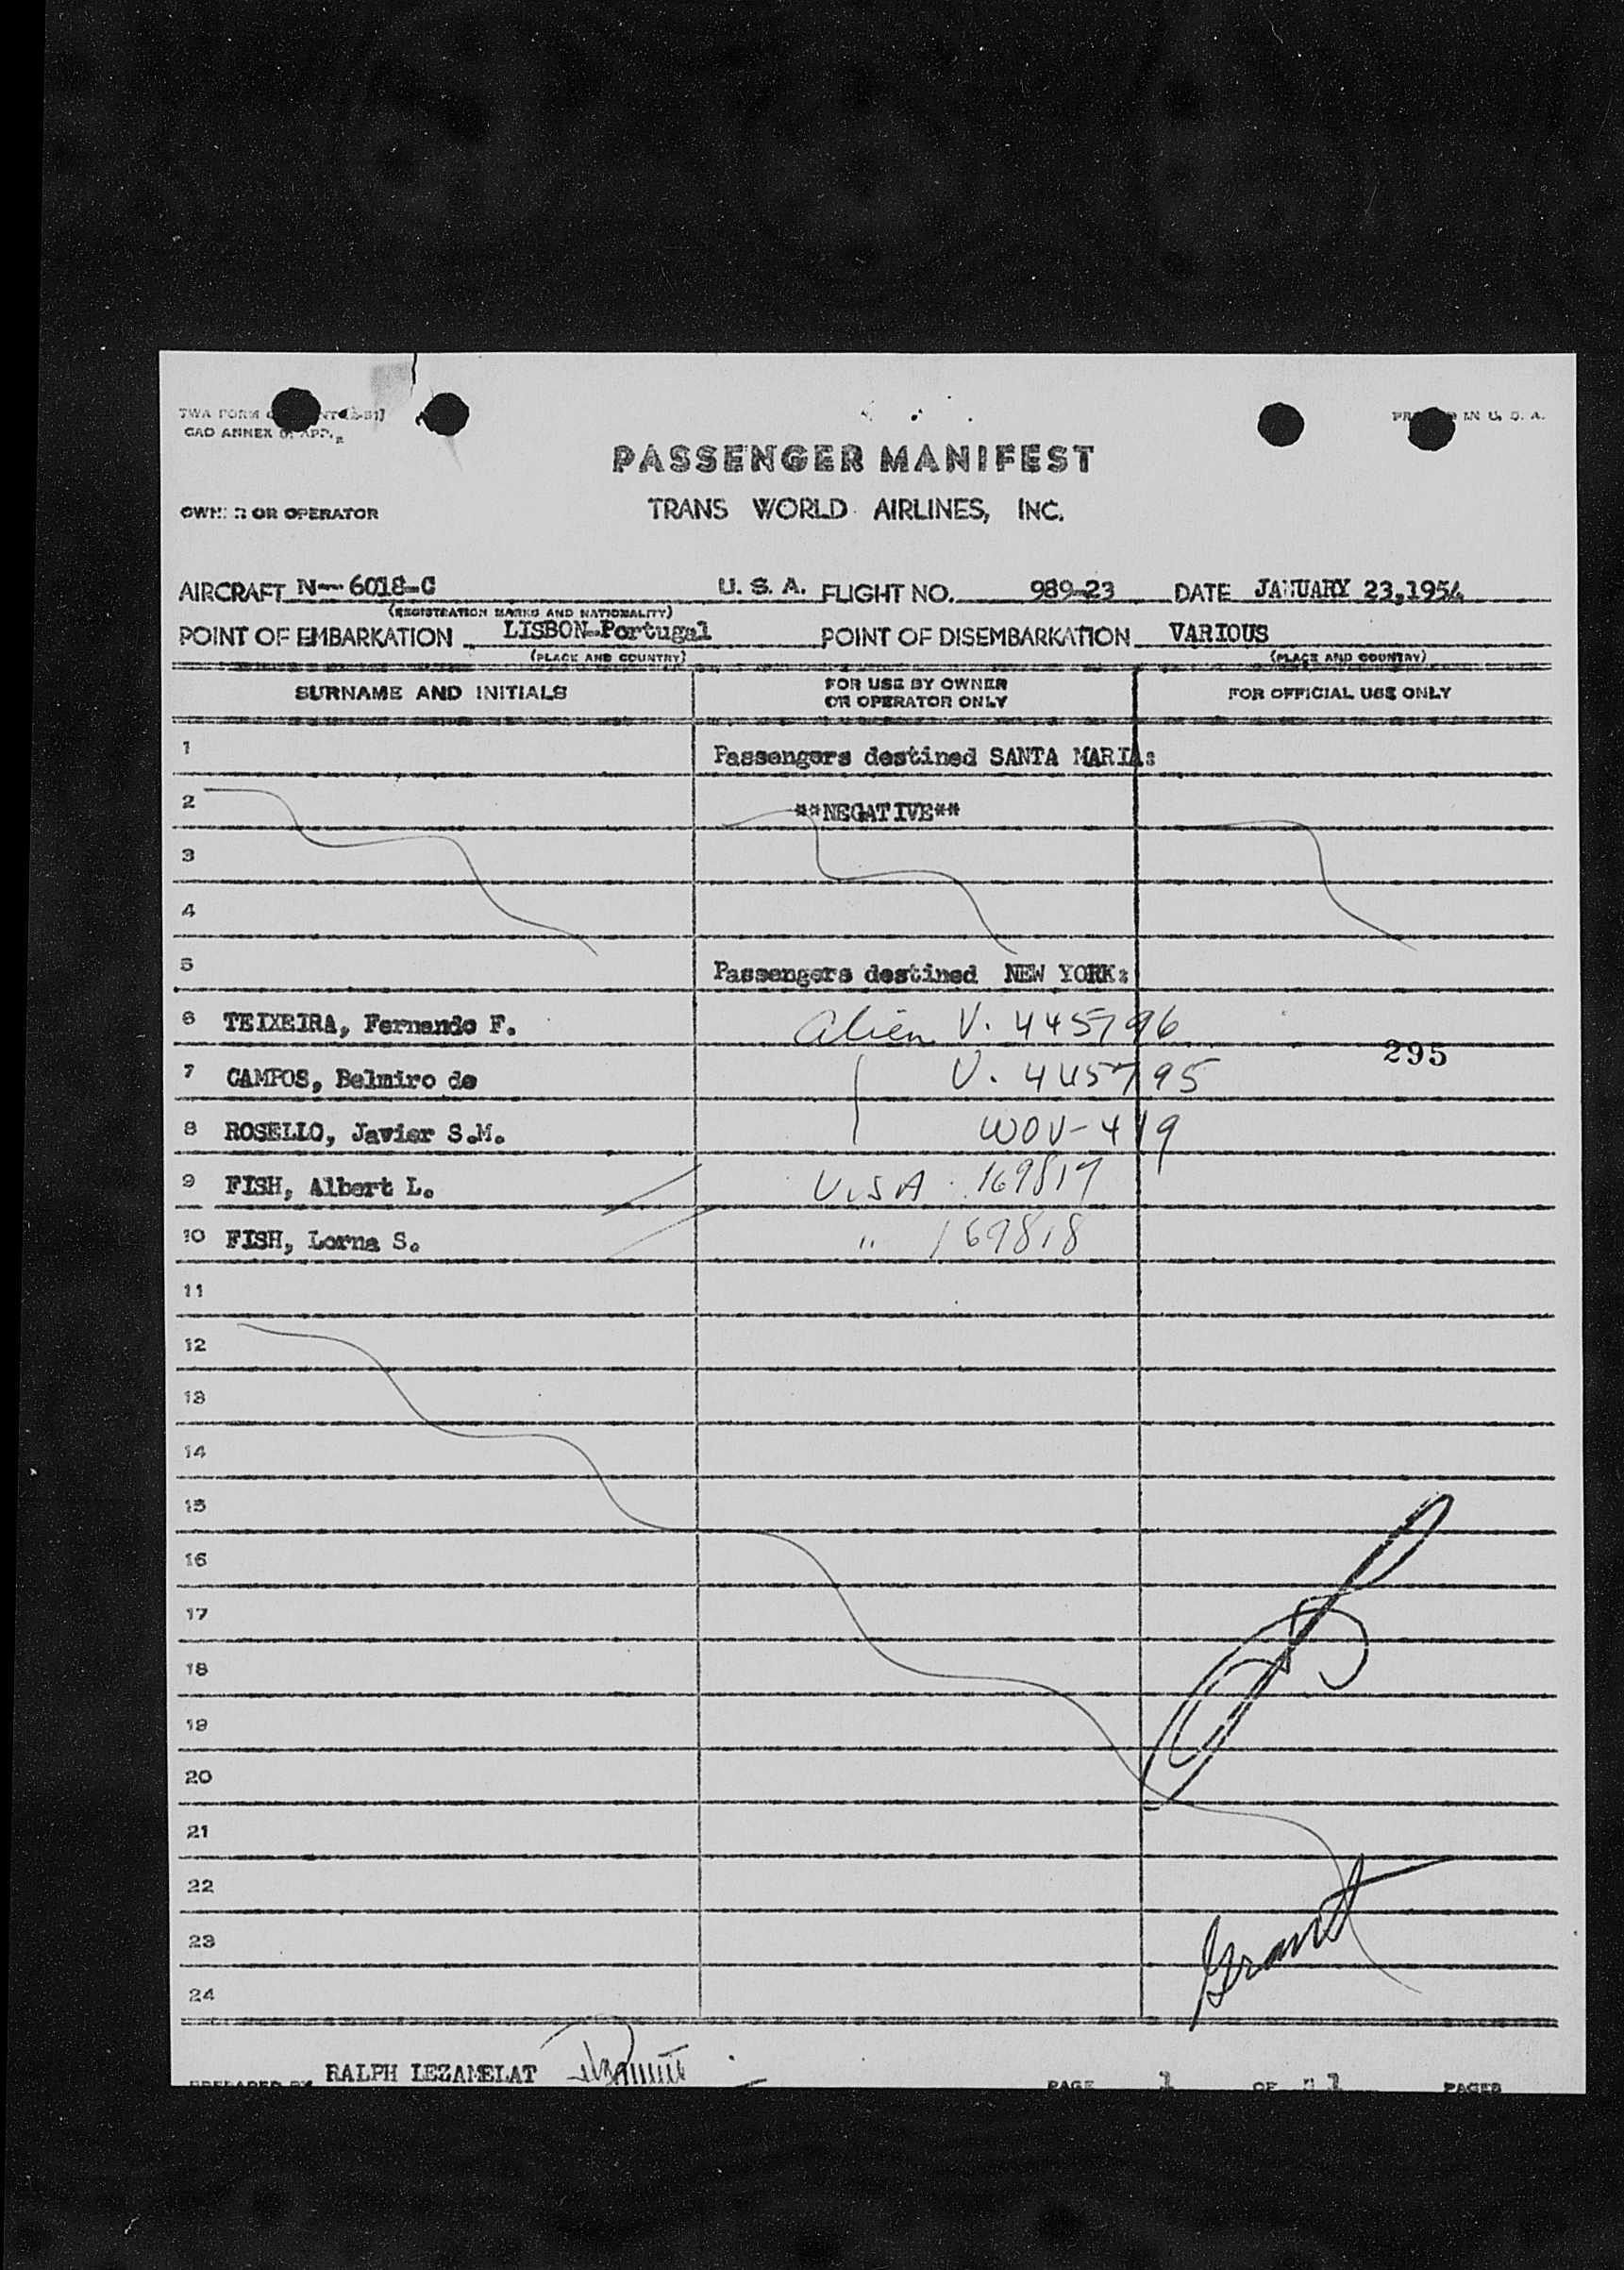 TWA FORM
CAO ANNEX
PASSENGER MANIFEST
OWNER OR OPERATOR TRANS WORLD AIRLINES, INC.
AIRCRAFT N--6018-C U. S. A. FLIGHT NO. 989-23 DATE JANUARY 23,1954
(REGISTRATION MARKS AND NATIONALITY)
POINT OF EMBARKATION LISBON-Portugal POINT OF DISEMBARKATION VARIOUS
(PLACE AND COUNTRY) (PLACE AND COUNTRY)
SURNAME AND INITIALS FOR USE BY OWNER OR OPERATOR ONLY FOR OFFICIAL USE ONLY
1 Passengers destined SANTA MARIA:
2 **NEGATIVE**
3
4
5 Passengers destined NEW YORK:
6 TEIXEIRA, Fernando F. Alien V. 445796
295
7 CAMPOS, Belmiro de V. 445795
8 ROSELLO, Javier S.M. WOV-419
9 FISH, Albert L. U.S.A. 169817
10 FISH, Lorna S. " 169818
11
12
13
14
15
16
17
18
19
20
21
22
23 Grant
24
PREPARED BY RALPH LEZAMELAT PAGE 1 OF 1 PAGES